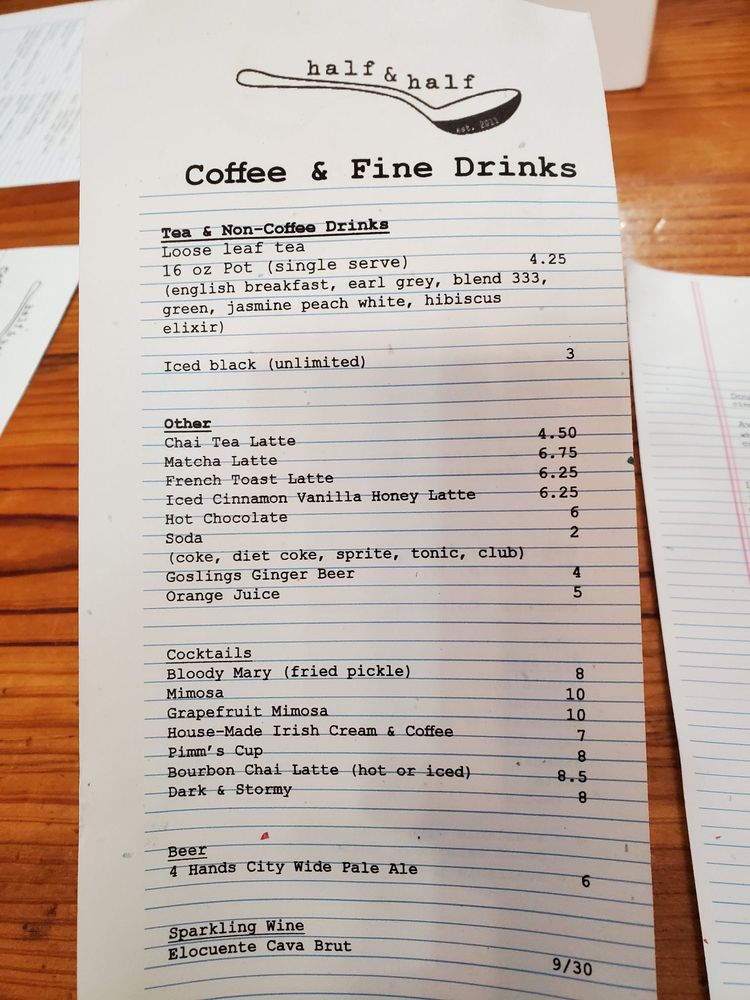 half & half
est. 2011
Coffee & Fine Drinks
Tea & Non-Coffee Drinks
Loose leaf tea
16 oz Pot (single serve) 4.25
(english breakfast, earl grey, blend 333,
green, jasmine peach white, hibiscus
elixir)
Iced black (unlimited) 3
Other
Chai Tea Latte 4.50
Matcha Latte 6.75
French Toast Latte 6.25
Iced Cinnamon Vanilla Honey Latte 6.25
Hot Chocolate 6
Soda 2
(coke, diet coke, sprite, tonic, club)
Goslings Ginger Beer 4
Orange Juice 5
Cocktails
Bloody Mary (fried pickle) 8
Mimosa 10
Grapefruit Mimosa 10
House-Made Irish Cream & Coffee 7
Pimm's Cup 8
Bourbon Chai Latte (hot or iced) 8.5
Dark & Stormy 8
Beer
4 Hands City Wide Pale Ale 6
Sparkling Wine
Elocuente Cava Brut 9/30
half